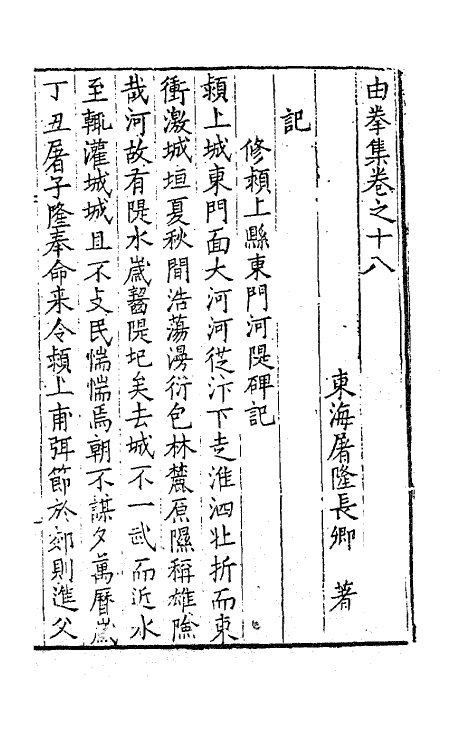 由拳集卷之十八
東海屠隆長卿　著
記
修潁上縣東門河隄碑記
潁上城東門面大河河從汴下走淮泗壯折而東
衝激城垣夏秋間浩蕩漫衍包林麓原隰稱雄險
哉河故有隄水歲齧隄圮矣去城不一武而近水
至輒灌城城且不支民惴惴焉朝不謀夕萬曆歲
丁丑屠子隆奉命来令潁上甫弭節於郊則進父